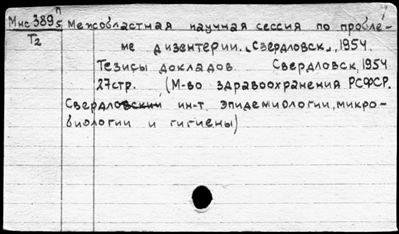 Мис 389 п/5 Межобластная научная сессия по пробле-
Т2 ме дизентерии. Свердловск, 1954.
Тезисы докладов. Свердловск, 1954
27стр. (М-во здравоохранения РСФСР.
Свердловский ин-т эпидемиологии, микро-
биологии и гигиены)